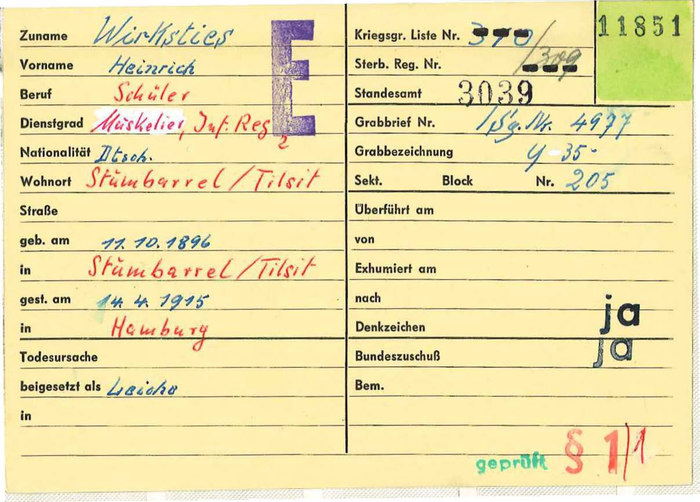 Zuname Wirksties
Vorname Heinrich
Beruf Schüler
Dienstgrad Muskelier, Inf. Reg 2
Nationalität Dtsch.
Wohnort Stümbarrel/Tilsit
Straße
geb. am 11.10.1896
in Stümbarrel/Tilsit
gest. am 14.4.1915
in Hamburg
Todesursache
beigesetzt als Leiche
in
E
Kriegsgr. Liste Nr. 370 /309
Sterb. Reg. Nr.
Standesamt 3039
Grabbrief Nr. 4977
Grabbezeichnung Y-35-
Sekt. Block Nr. 205
Überführt am
von
Exhumiert am
nach
Denkzeichen ja
Bundeszuschuß ja
Bem.
geprüft § 1/1
11851